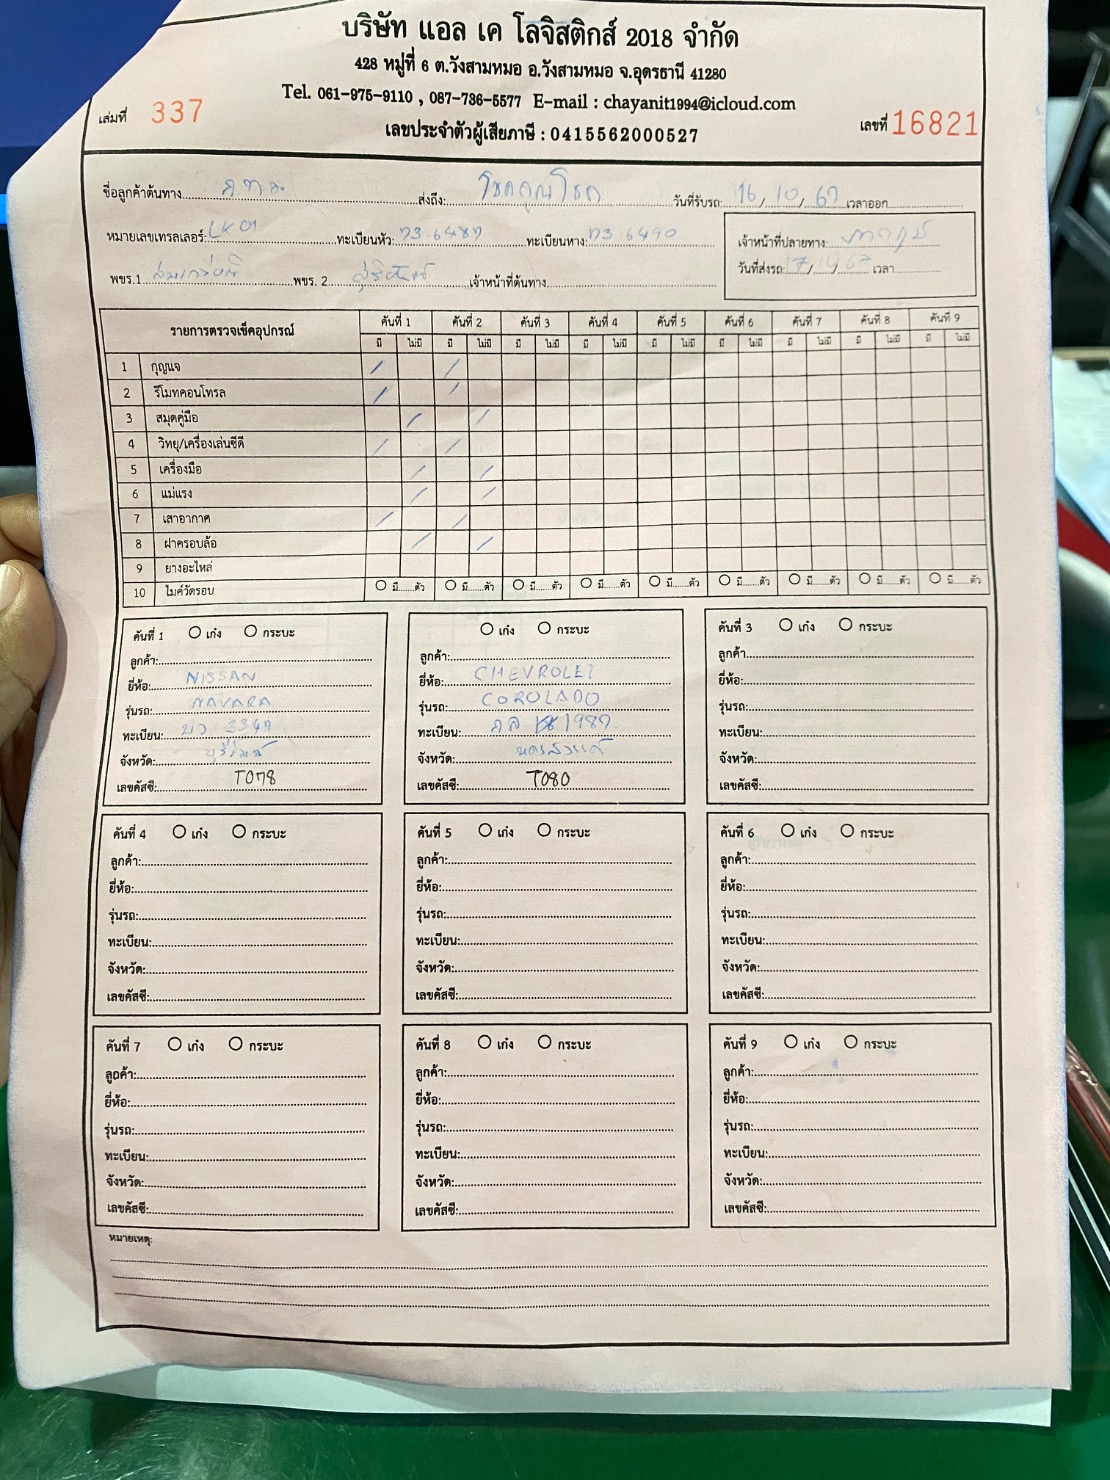 บริษัท แอล เค โลจิสติกส์ 2018 จำกัด
428 หมู่ที่ 6 ต.วังสามหมอ อ.วังสามหมอ จ.อุดรธานี 41280
Tel. 061-975-9110 , 087-736-5577 E-mail : chayanit1994@icloud.com
เล่มที่ 337 เลขประจำตัวผู้เสียภาษี : 0415562000527 เลขที่ 16821
ชื่อลูกค้าต้นทาง ส่งถึง: โชคคูณโชค วันที่รับรถ: 16/10/67 เวลาออก
หมายเลขเทรลเลอร์: LK01 ทะเบียนหัว: 73 6489 ทะเบียนหาง: 73 6490 เจ้าหน้าที่ปลายทาง:
พขร.1 พขร. 2 เจ้าหน้าที่ต้นทาง วันที่ส่งรถ: 17/10/67 เวลา
รายการตรวจเช็คอุปกรณ์ คันที่ 1 คันที่ 2 คันที่ 3 คันที่ 4 คันที่ 5 คันที่ 6 คันที่ 7 คันที่ 8 คันที่ 9
มี ไม่มี มี ไม่มี มี ไม่มี มี ไม่มี มี ไม่มี มี ไม่มี มี ไม่มี มี ไม่มี มี ไม่มี
1 กุญแจ / /
2 รีโมทคอนโทรล / /
3 สมุดคู่มือ / /
4 วิทยุ/เครื่องเล่นซีดี / /
5 เครื่องมือ / /
6 แม่แรง / /
7 เสาอากาศ / /
8 ฝาครอบล้อ / /
9 ยางอะไหล่
10 ไมค์วัดรอบ มี......ตัว มี......ตัว มี......ตัว มี......ตัว มี......ตัว มี......ตัว มี......ตัว มี......ตัว มี......ตัว
คันที่ 1 เก๋ง กระบะ
ลูกค้า:
ยี่ห้อ: NISSAN
รุ่นรถ: NAVARA
ทะเบียน: บว 3349
จังหวัด: บุรีรัมย์
เลขคัสซี: T078
เก๋ง กระบะ
ลูกค้า:
ยี่ห้อ: CHEVROLET
รุ่นรถ: COROLADO
ทะเบียน: 1989
จังหวัด: นครสวรรค์
เลขคัสซี: T080
คันที่ 3 เก๋ง กระบะ
ลูกค้า
ยี่ห้อ:
รุ่นรถ:
ทะเบียน:
จังหวัด:
เลขคัสซี:
คันที่ 4 เก๋ง กระบะ
ลูกค้า:
ยี่ห้อ:
รุ่นรถ:
ทะเบียน:
จังหวัด:
เลขคัสซี:
คันที่ 5 เก๋ง กระบะ
ลูกค้า:
ยี่ห้อ:
รุ่นรถ:
ทะเบียน:
จังหวัด:
เลขคัสซี:
คันที่ 6 เก๋ง กระบะ
ลูกค้า:
ยี่ห้อ:
รุ่นรถ:
ทะเบียน:
จังหวัด:
เลขคัสซี:
คันที่ 7 เก๋ง กระบะ
ลูกค้า:
ยี่ห้อ:
รุ่นรถ:
ทะเบียน:
จังหวัด:
เลขคัสซี:
คันที่ 8 เก๋ง กระบะ
ลูกค้า:
ยี่ห้อ:
รุ่นรถ:
ทะเบียน:
จังหวัด:
เลขคัสซี:
คันที่ 9 เก๋ง กระบะ
ลูกค้า:
ยี่ห้อ:
รุ่นรถ:
ทะเบียน:
จังหวัด:
เลขคัสซี:
หมายเหตุ: